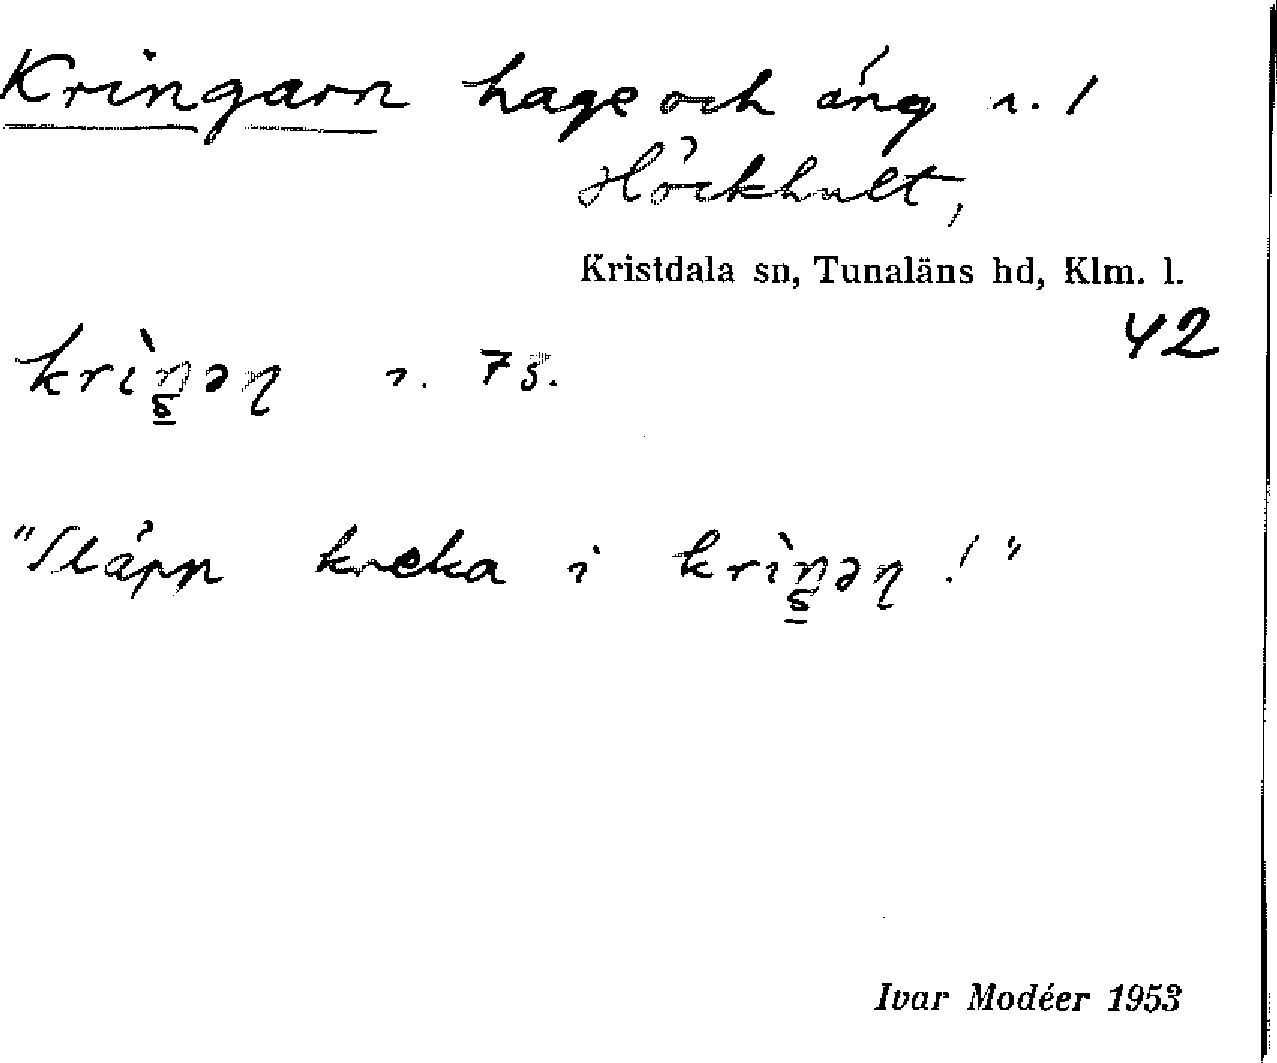 Kringarn hage och äng n. 1
Höckhult,
Kristdala sn, Tunaläns hd, Klm. l.
42
krìŋəɳ n. 75.
"Släpp kreka i krìŋəɳ!"
Ivar Modéer 1953